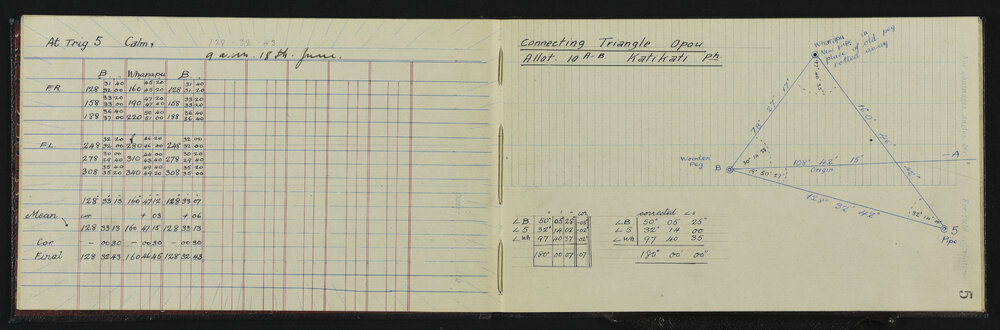 At Trig 5 Calm,
128-32-43
9 a.m. 18th. June.
B . Wharapu B .
FR
31 40 45 20 31 40
128 32 00 160 45 20 128 31 20
33 20 47 20 33 20
158 33 00 190 47 40 158 33 40
36 40 50 40 36 40
188 37 00 220 51 00 188 36 40
FL
32 20 46 20 32 00
248 32 00 280 46 00 248 32 00
30 00 44 00 30 00
278 29 40 310 43 40 278 29 40
35 40 49 40 35 20
308 35 20 340 49 20 308 35 00
128 33 13 160 47 12 128 33 07
Mean cor + 03 + 06
128 33 13 160 47 15 128 33 13
Cor - 00 30 - 00 30 - 00 30
Final 128 32 43 160 46 45 128 32 43
Connecting Triangle Opou
Allot. 10 A-B Katikati Ph.
Wharapu
New pipe in
place of old peg
rotted away
78° 27' 17"
160° 46' 42"
Wooden
Peg
B
30° 14' 58"
19° 50' 27"
108° 42' 15"
Origin
A
128° 32' 42"
32° 14' 00"
5
Pipe
° ' " cor
∠B 50° 05 28 -03"
∠5 32° 14 02 -02"
∠Wh 97 40 37 -02"
180° 00 07 -07
corrected ∠s
∠B 50° 05 25"
∠5 32° 14 00
∠Wh 97 40 35
180° 00" 00"
5